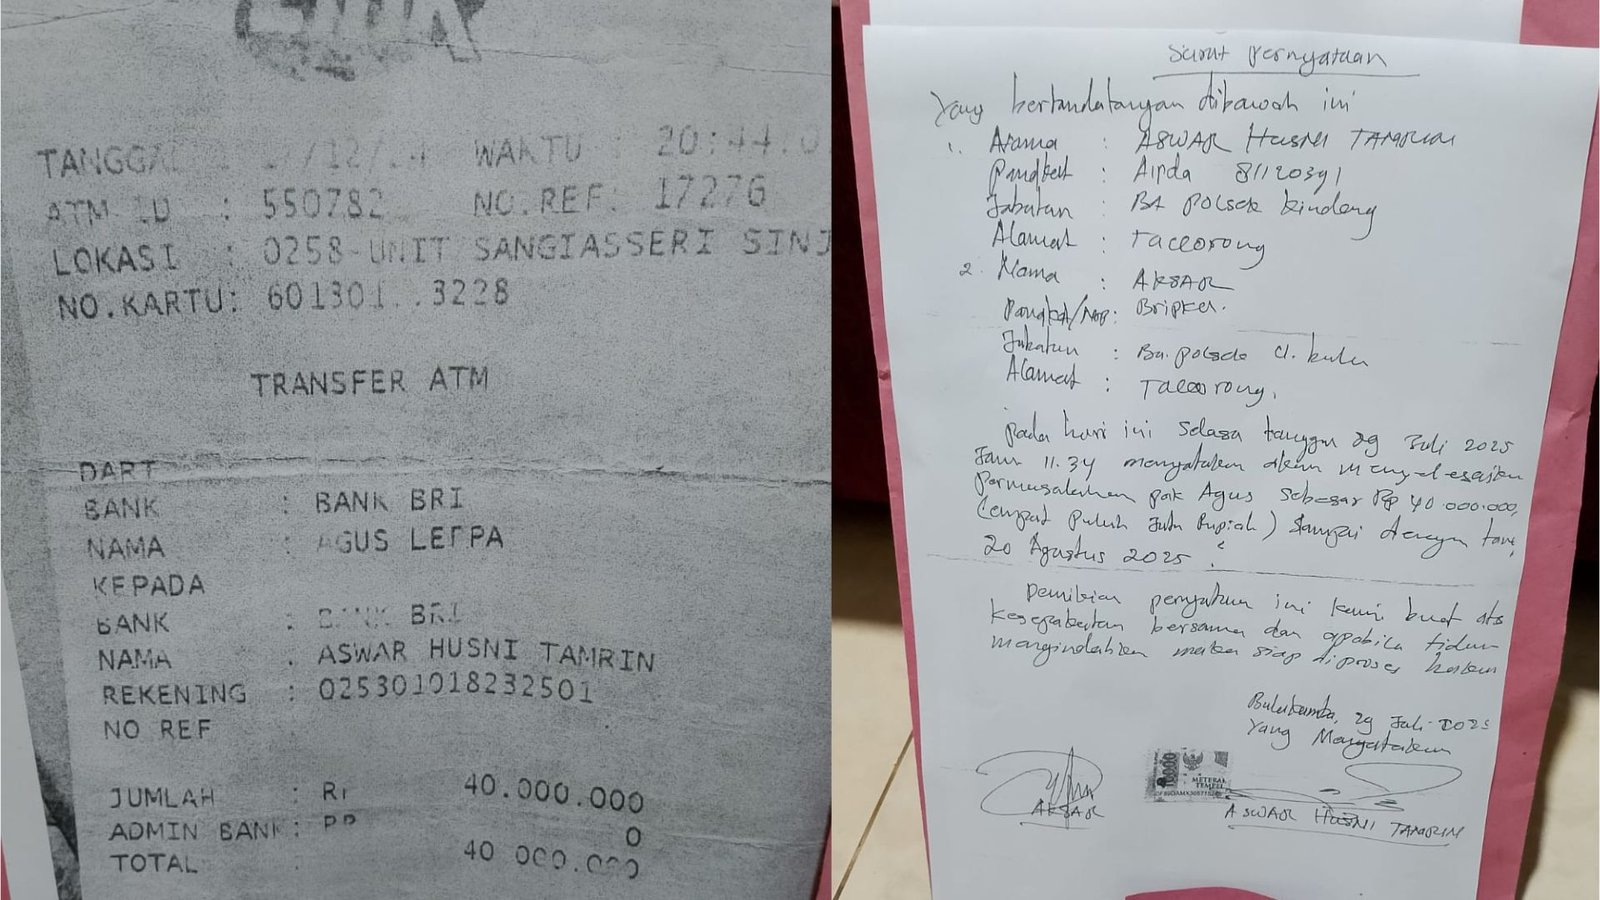 TANGGAL : /12/24 WAKTU : 20:44:0
ATM ID : 550782 NO.REF. 17276
LOKASI : 0258-UNIT SANGIASSERI SINJ
NO.KARTU: 601301..3228
TRANSFER ATM
DARI
BANK : BANK BRI
NAMA : AGUS LEPPA
KEPADA
BANK : BANK BRI
NAMA : ASWAR HUSNI TAMRIN
REKENING : 025301018232501
NO REF
JUMLAH : RP 40.000.000
ADMIN BANK: RP 0
TOTAL : 40 000.000
Surat Pernyataan
Yang bertandatangan dibawah ini
1. Nama : ASWAR HUSNI TAMRIN
Pangkat : Aipda 81120391
Jabatan : BA Polsek Kindang
Alamat : Taccorong
2. Nama : AKSAR
Pangkat/Nrp : Bripka.
Jabatan : Ba. polsek
Alamat : Taccorong.
pada hari ini Selasa tanggal 29 Juli 2025
Jam 11.34 menyatakan akan menyelesaikan
permasalahan pak Agus sebesar Rp 40.000.000,
(empat puluh Juta Rupiah) Sampai dengan
20 Agustus 2025
Demikian pernyataan ini kami buat ats
kesepakatan bersama dan apabila tidak
mengindahkan maka siap diproses hukum
Bulukumba, 29 Juli 2025
Yang Menyatakan
10000
METERAI
TEMPEL
AKSAR
ASWAR HUSNI TAMRIN